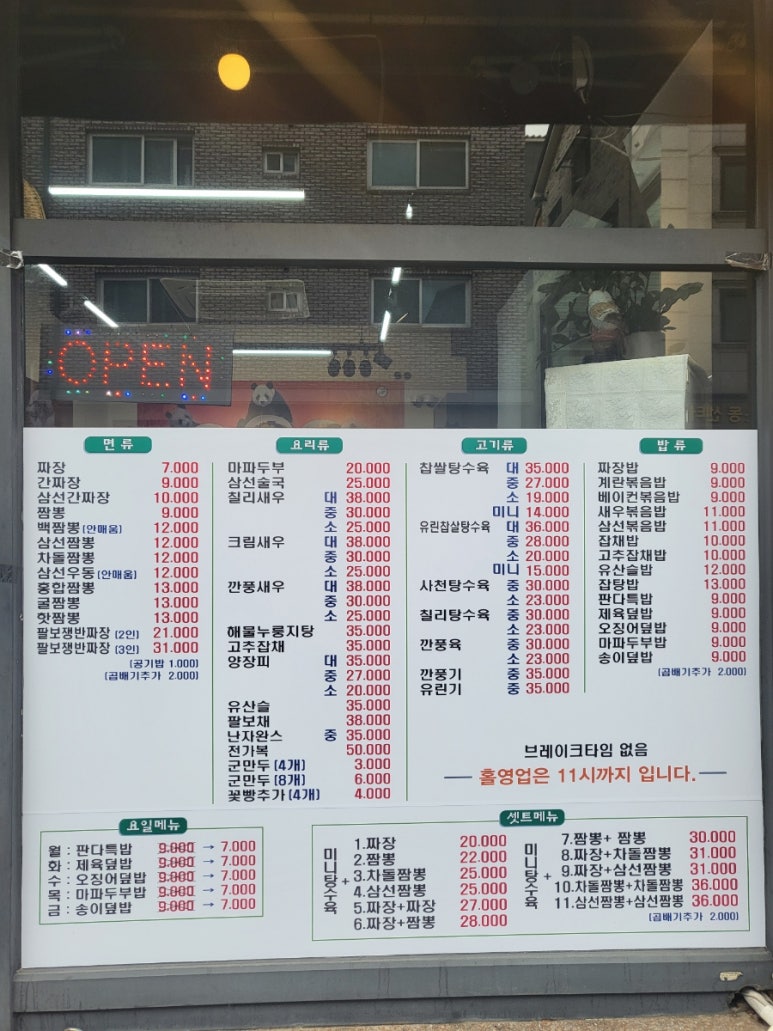 OPEN
면 류
짜장 7.000
간짜장 9.000
삼선간짜장 10.000
짬뽕 9.000
백짬뽕(안매움) 12.000
삼선짬뽕 12.000
차돌짬뽕 12.000
삼선우동(안매움) 12.000
홍합짬뽕 13.000
굴짬뽕 13.000
핫짬뽕 13.000
팔보쟁반짜장 (2인) 21.000
팔보쟁반짜장 (3인) 31.000
(공기밥 1.000)
(곱배기추가 2.000)
요리류
마파두부 20.000
삼선술국 25.000
칠리새우 대 38.000
중 30.000
소 25.000
크림새우 대 38.000
중 30.000
소 25.000
깐풍새우 대 38.000
중 30.000
소 25.000
해물누룽지탕 35.000
고추잡채 35.000
양장피 대 35.000
중 27.000
소 20.000
유산슬 35.000
팔보채 38.000
난자완스 중 35.000
전가복 50.000
군만두 (4개) 3.000
군만두 (8개) 6.000
꽃빵추가 (4개) 4.000
고기류
찹쌀탕수육 대 35.000
중 27.000
소 19.000
미니 14.000
유린찹살탕수육 대 36.000
중 28.000
소 20.000
미니 15.000
사천탕수육 중 30.000
소 23.000
칠리탕수육 중 30.000
소 23.000
깐풍육 중 30.000
소 23.000
깐풍기 중 35.000
유린기 중 35.000
밥 류
짜장밥 9.000
계란볶음밥 9.000
베이컨볶음밥 9.000
새우볶음밥 11.000
삼선볶음밥 11.000
잡채밥 10.000
고추잡채밥 10.000
유산슬밥 12.000
잡탕밥 13.000
판다특밥 9.000
제육덮밥 9.000
오징어덮밥 9.000
마파두부밥 9.000
송이덮밥 9.000
(곱배기추가 2.000)
브레이크타임 없음
홀영업은 11시까지 입니다.
요일메뉴
월 : 판다특밥 9.000 → 7.000
화 : 제육덮밥 9.000 → 7.000
수 : 오징어덮밥 9.000 → 7.000
목 : 마파두부밥 9.000 → 7.000
금 : 송이덮밥 9.000 → 7.000
셋트메뉴
미니탕수육 +
1.짜장 20.000
2.짬뽕 22.000
3.차돌짬뽕 25.000
4.삼선짬뽕 25.000
5.짜장+짜장 27.000
6.짜장+짬뽕 28.000
미니탕수육 +
7.짬뽕+ 짬뽕 30.000
8.짜장+차돌짬뽕 31.000
9.짜장+삼선짬뽕 31.000
10.차돌짬뽕+차돌짬뽕 36.000
11.삼선짬뽕+삼선짬뽕 36.000
(곱배기추가 2.000)